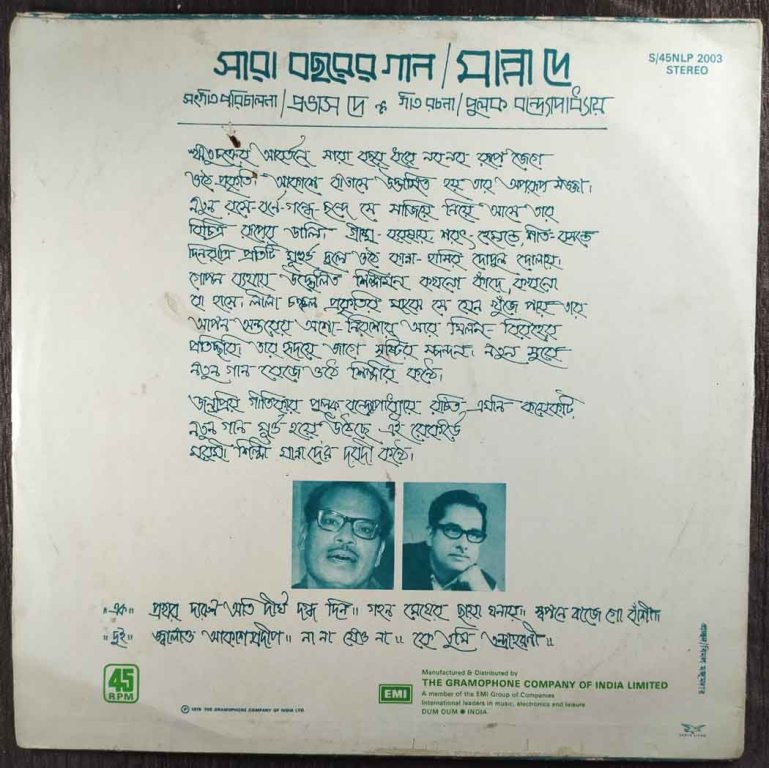 সারা বছরের গান / মান্না দে
S/45NLP 2003
STEREO
সংগীত পরিচালনা / প্রভাস দে ঃ গীত রচনা / পুলক বন্দ্যোপাধ্যায়
ঋতুচক্রের আবর্তনে সারা বছর ধরে নব নব রূপে জেগে
ওঠে প্রকৃতি। আকাশে বাতাসে উদ্ভাসিত হয় তার অপরূপ সজ্জা।
নতুন রসে-বর্ণে-গন্ধে ছন্দে সে সাজিয়ে নিয়ে আসে তার
বিচিত্র রূপের ডালি। গ্রীষ্ম-বরষায় শরৎ-হেমন্তে শীত-বসন্তে
দিনরাত্রি প্রতিটি মুহূর্ত দুলে ওঠে কান্না-হাসির দোদুল দোলায়।
গোপন ব্যথায় উদ্বেলিত শিল্পীমন কখনো কাঁদে, কখনো
বা হাসে। লীলা চঞ্চল প্রকৃতির মাঝে সে যেন খুঁজে পায় তার
আপন অন্তরের আশা-নিরাশার আর মিলন বিরহের
প্রতিচ্ছবি। তার হৃদয়ে জাগে সৃষ্টির স্পন্দন। নতুন সুরে
নতুন গান বেজে ওঠে শিল্পীর কণ্ঠে।
জনপ্রিয় গীতিকার পুলক বন্দ্যোপাধ্যায় রচিত এমনি কয়েকটি
নতুন গান মূর্ত হয়ে উঠেছে এই রেকর্ডে
মরমী শিল্পী মান্না দের দরদী কণ্ঠে।
॥এক॥ প্রখর দারুণ অতি দীর্ঘ দগ্ধ দিন॥ গহন মেঘের ছায়া ঘনায়॥ স্বপনে বাজে গো বাঁশী॥
॥দুই॥ জ্বালাও আকাশপ্রদীপ॥ না না যেও না॥ কে তুমি তন্দ্রাহরণী॥
45
RPM
Ⓟ 1978 THE GRAMOPHONE COMPANY OF INDIA LTD.
EMI
Manufactured & Distributed by
THE GRAMOPHONE COMPANY OF INDIA LIMITED
A member of the EMI Group of Companies
International leaders in music, electronics and leisure
DUM DUM ● INDIA